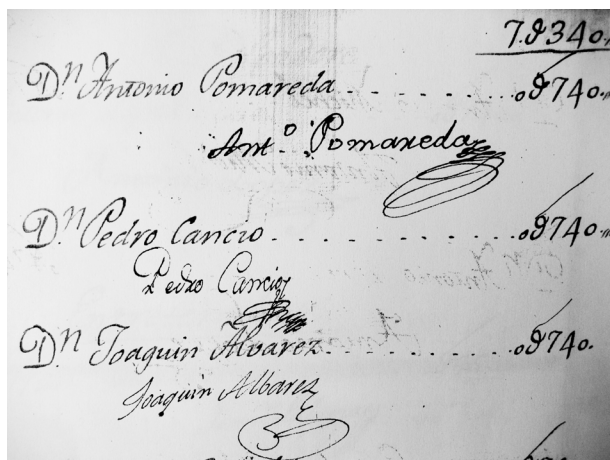 7.ϑ340.
D.n Antonio Pomareda . . . . . . . . . . .oϑ740.
Ant.o Pomareda
D.n Pedro Cancio . . . . . . . . . . .oϑ740.
Pedro Cancio
D.n Joaquin Alvarez . . . . . . . . . . .oϑ740.
Joaquin Albarez